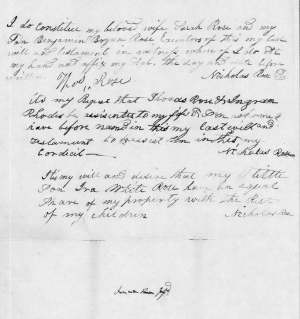 I do constitue my beloved wife Sarah Rose and my
Son Benjamin Bryan Rose Executors of this my last
will and testament in witness whereof I do Set
my hand and affix my Seal the day and date before
Nicholas Rose
Thos. Rose
its my Request that Rhodes Rose & Ingram
Rhodes be my
have before named in this my last will and
testament to assist them in this my
Codicil
Nicholas Rose
It is my will and desire that my little
Son Ira White Rose have an equal
Share of my property with the Rest
of my children
Nicholas Rose